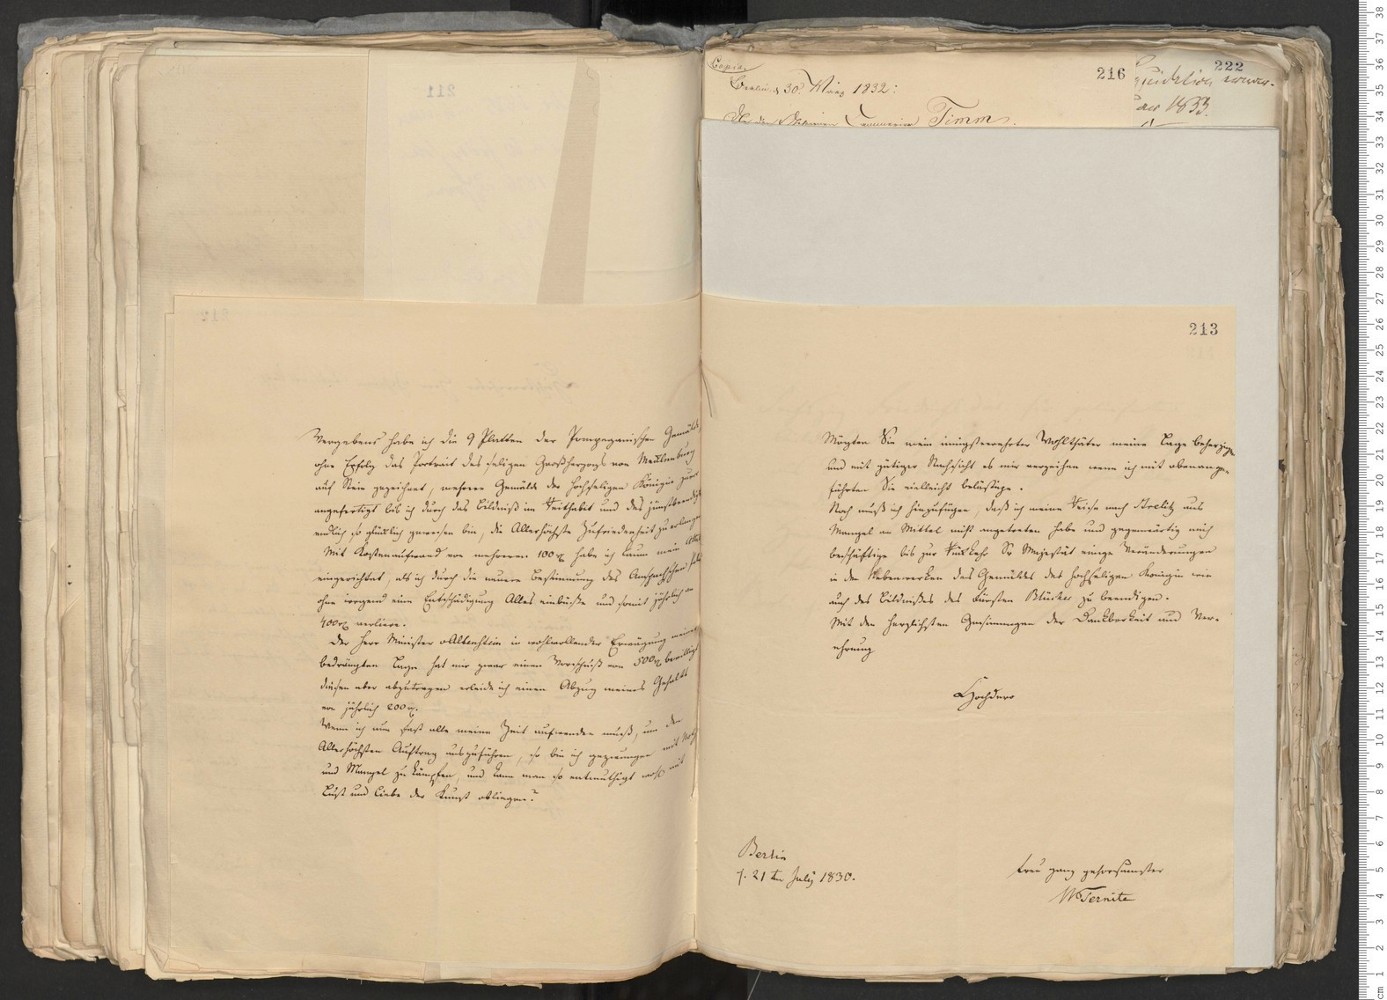 Vergebens habe ich die 9 Platten der Pompeganischen Gemälde
ohne Erfolg das Portrait des seligen Großherzogs von Mecklenburg
auf Stein gezeichnet, mehrere Gemälde der hochseligen Königin zuvor
angefertigt bis ich durch das Bildniß in und das
endlich so glücklich gewesen bin, die Allerhöchste Zufriedenheit zu erlangen
Mit Kostenaufwand von mehreren 100 rt habe ich kaum mein
eingerichtet, als ich durch die neuere Bestimmung des
ohne irgend eine Entschädigung Alles einbüße und somit jährlich an
400 rt verliere.
Der Herr Minister v Altenstein in wohlwollender Erwägung meiner
bedrängten Lage hat mir zwar einen Vorschuß von 500 rt bewilligt
diesen aber abzutragen erleide ich einen Abzug meines Gehalts
von jährlich 200 rt.
Wenn ich nun fast alle meine Zeit aufwenden muß, um den
Allerhöchsten Auftrag auszuführen, so bin ich gezwungen mit Noth
und Mangel zu kämpfen, und kann man so entmuthigt wohl mit
Lust und Liebe der Kunst obliegen?
Copia
Berlin d 30 März 1832:
216
222
An den Geheimen Timm.
1833.
213
Mögten Sie mein innigstverehrter Wohlthäter meine Lage beherzigen
und mit gütiger Nachsicht es mir verzeihen wenn ich mit
führten Sie vielleicht belästige.
Noch muß ich hinzufügen, daß ich meine Reise nach Strelitz aus
Mangel an Mittel nicht angetreten habe und gegenwärtig mich
beschäftige bis zur Rückkehr Sr Majestät einige Veränderungen
in den Nebenwerken des Gemäldes der hochseligen Königin wie
auch des Bildnißes des Fürsten Blücher zu beendigen.
Mit den herzlichsten Gesinnungen der Dankbarkeit und Ver-
ehrung
Hochdero
Berlin
d. 21ten July 1830.
treu ganz gehorsamster
W Ternite